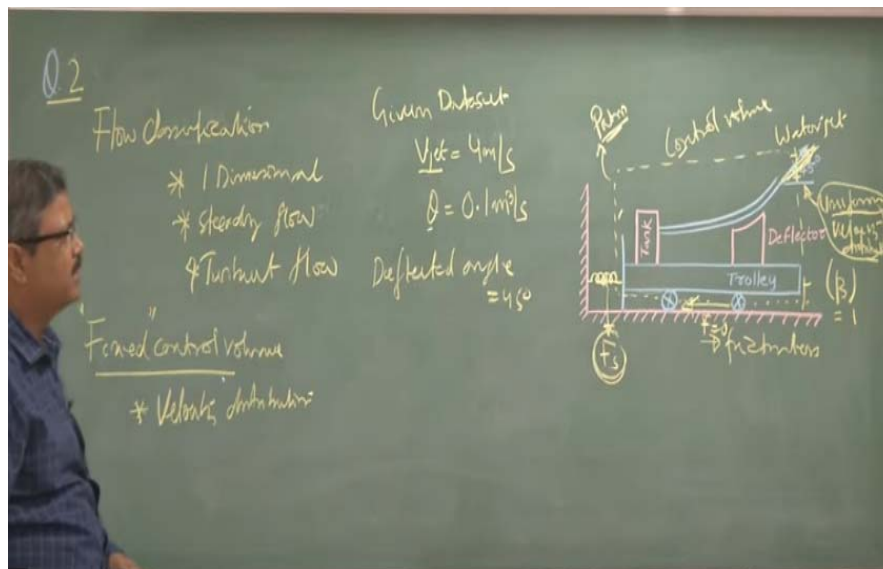 Q.2
Flow classification
* 1 Dimensional
* Steady flow
* Turbulent flow
"Fixed" control volume
* Velocity distribution
Given Dataset
Vjet = 4m/s
Q = 0.1m³/s
Deflected angle
= 45°
Patm
Control volume
Water jet
45°
Uniform
Velocity
Tank
Deflector
Trolley
(β)
= 1
F=0
→ frictionless
Fs